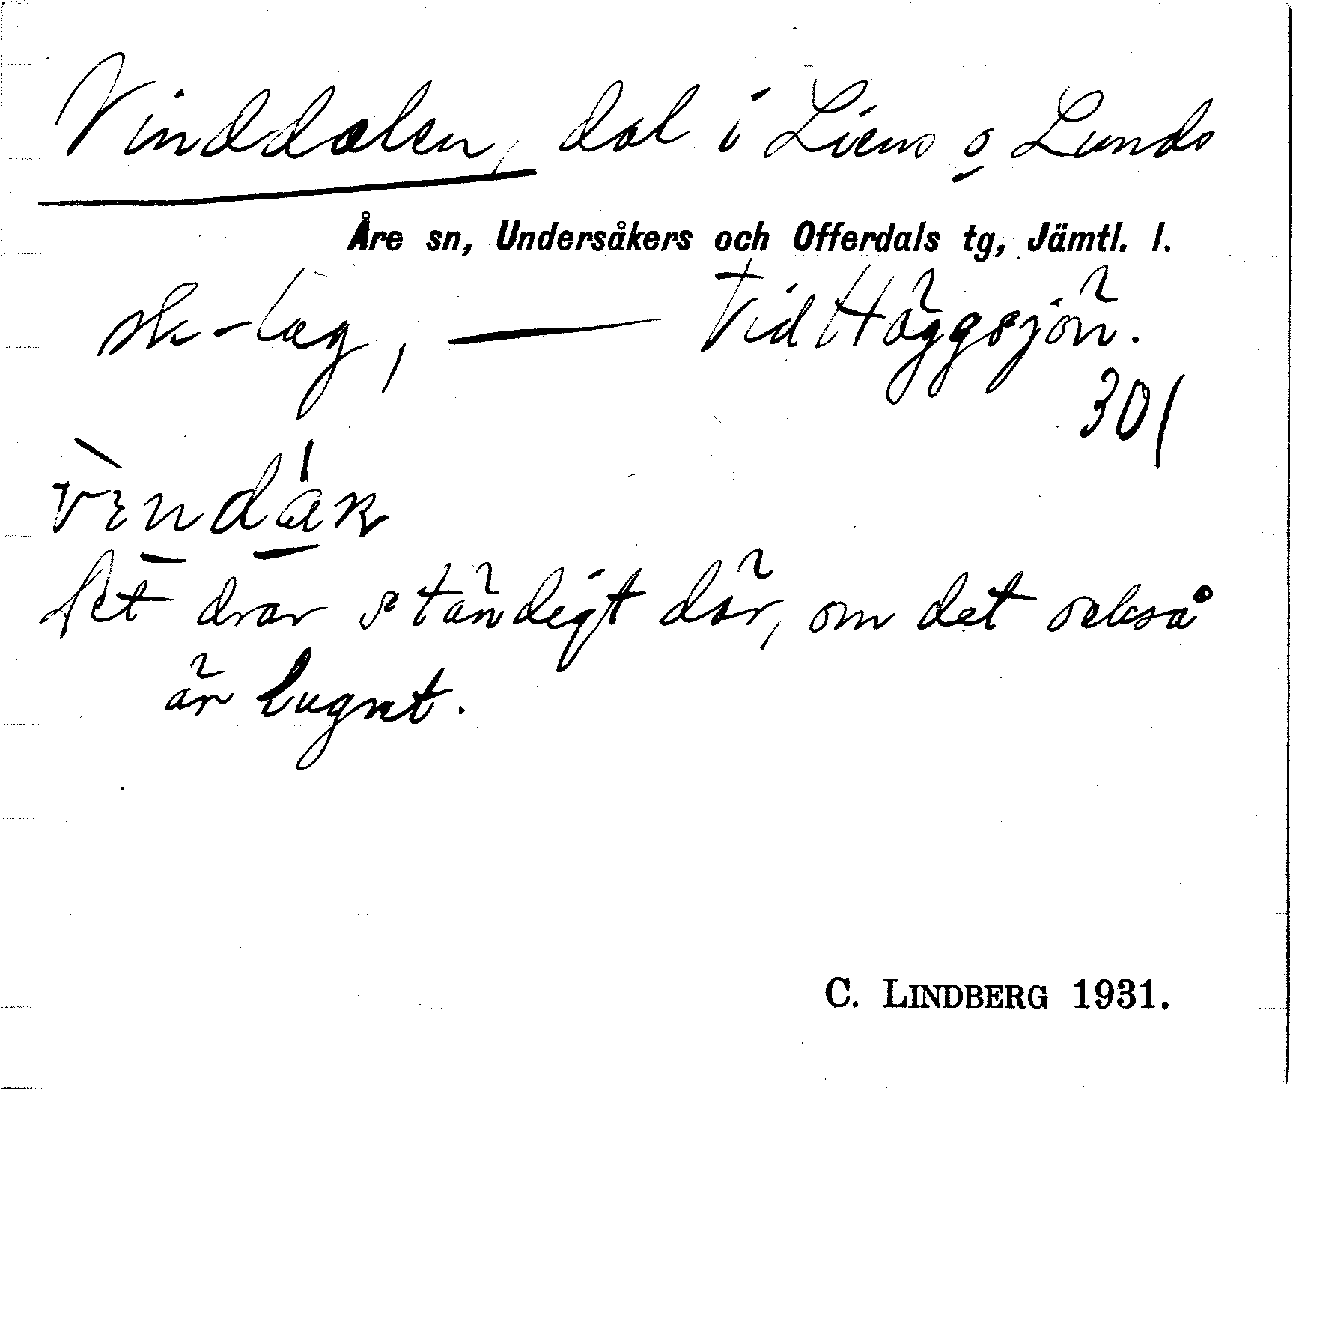 Vinddalen, dal i Liens o Lunds
Åre sn, Undersåkers och Offerdals tg, Jämtl. l.
sk-lag, — Vid Häggsjön.
301
Det drar ständigt där, om det också
är lugnt.
C. LINDBERG 1931.